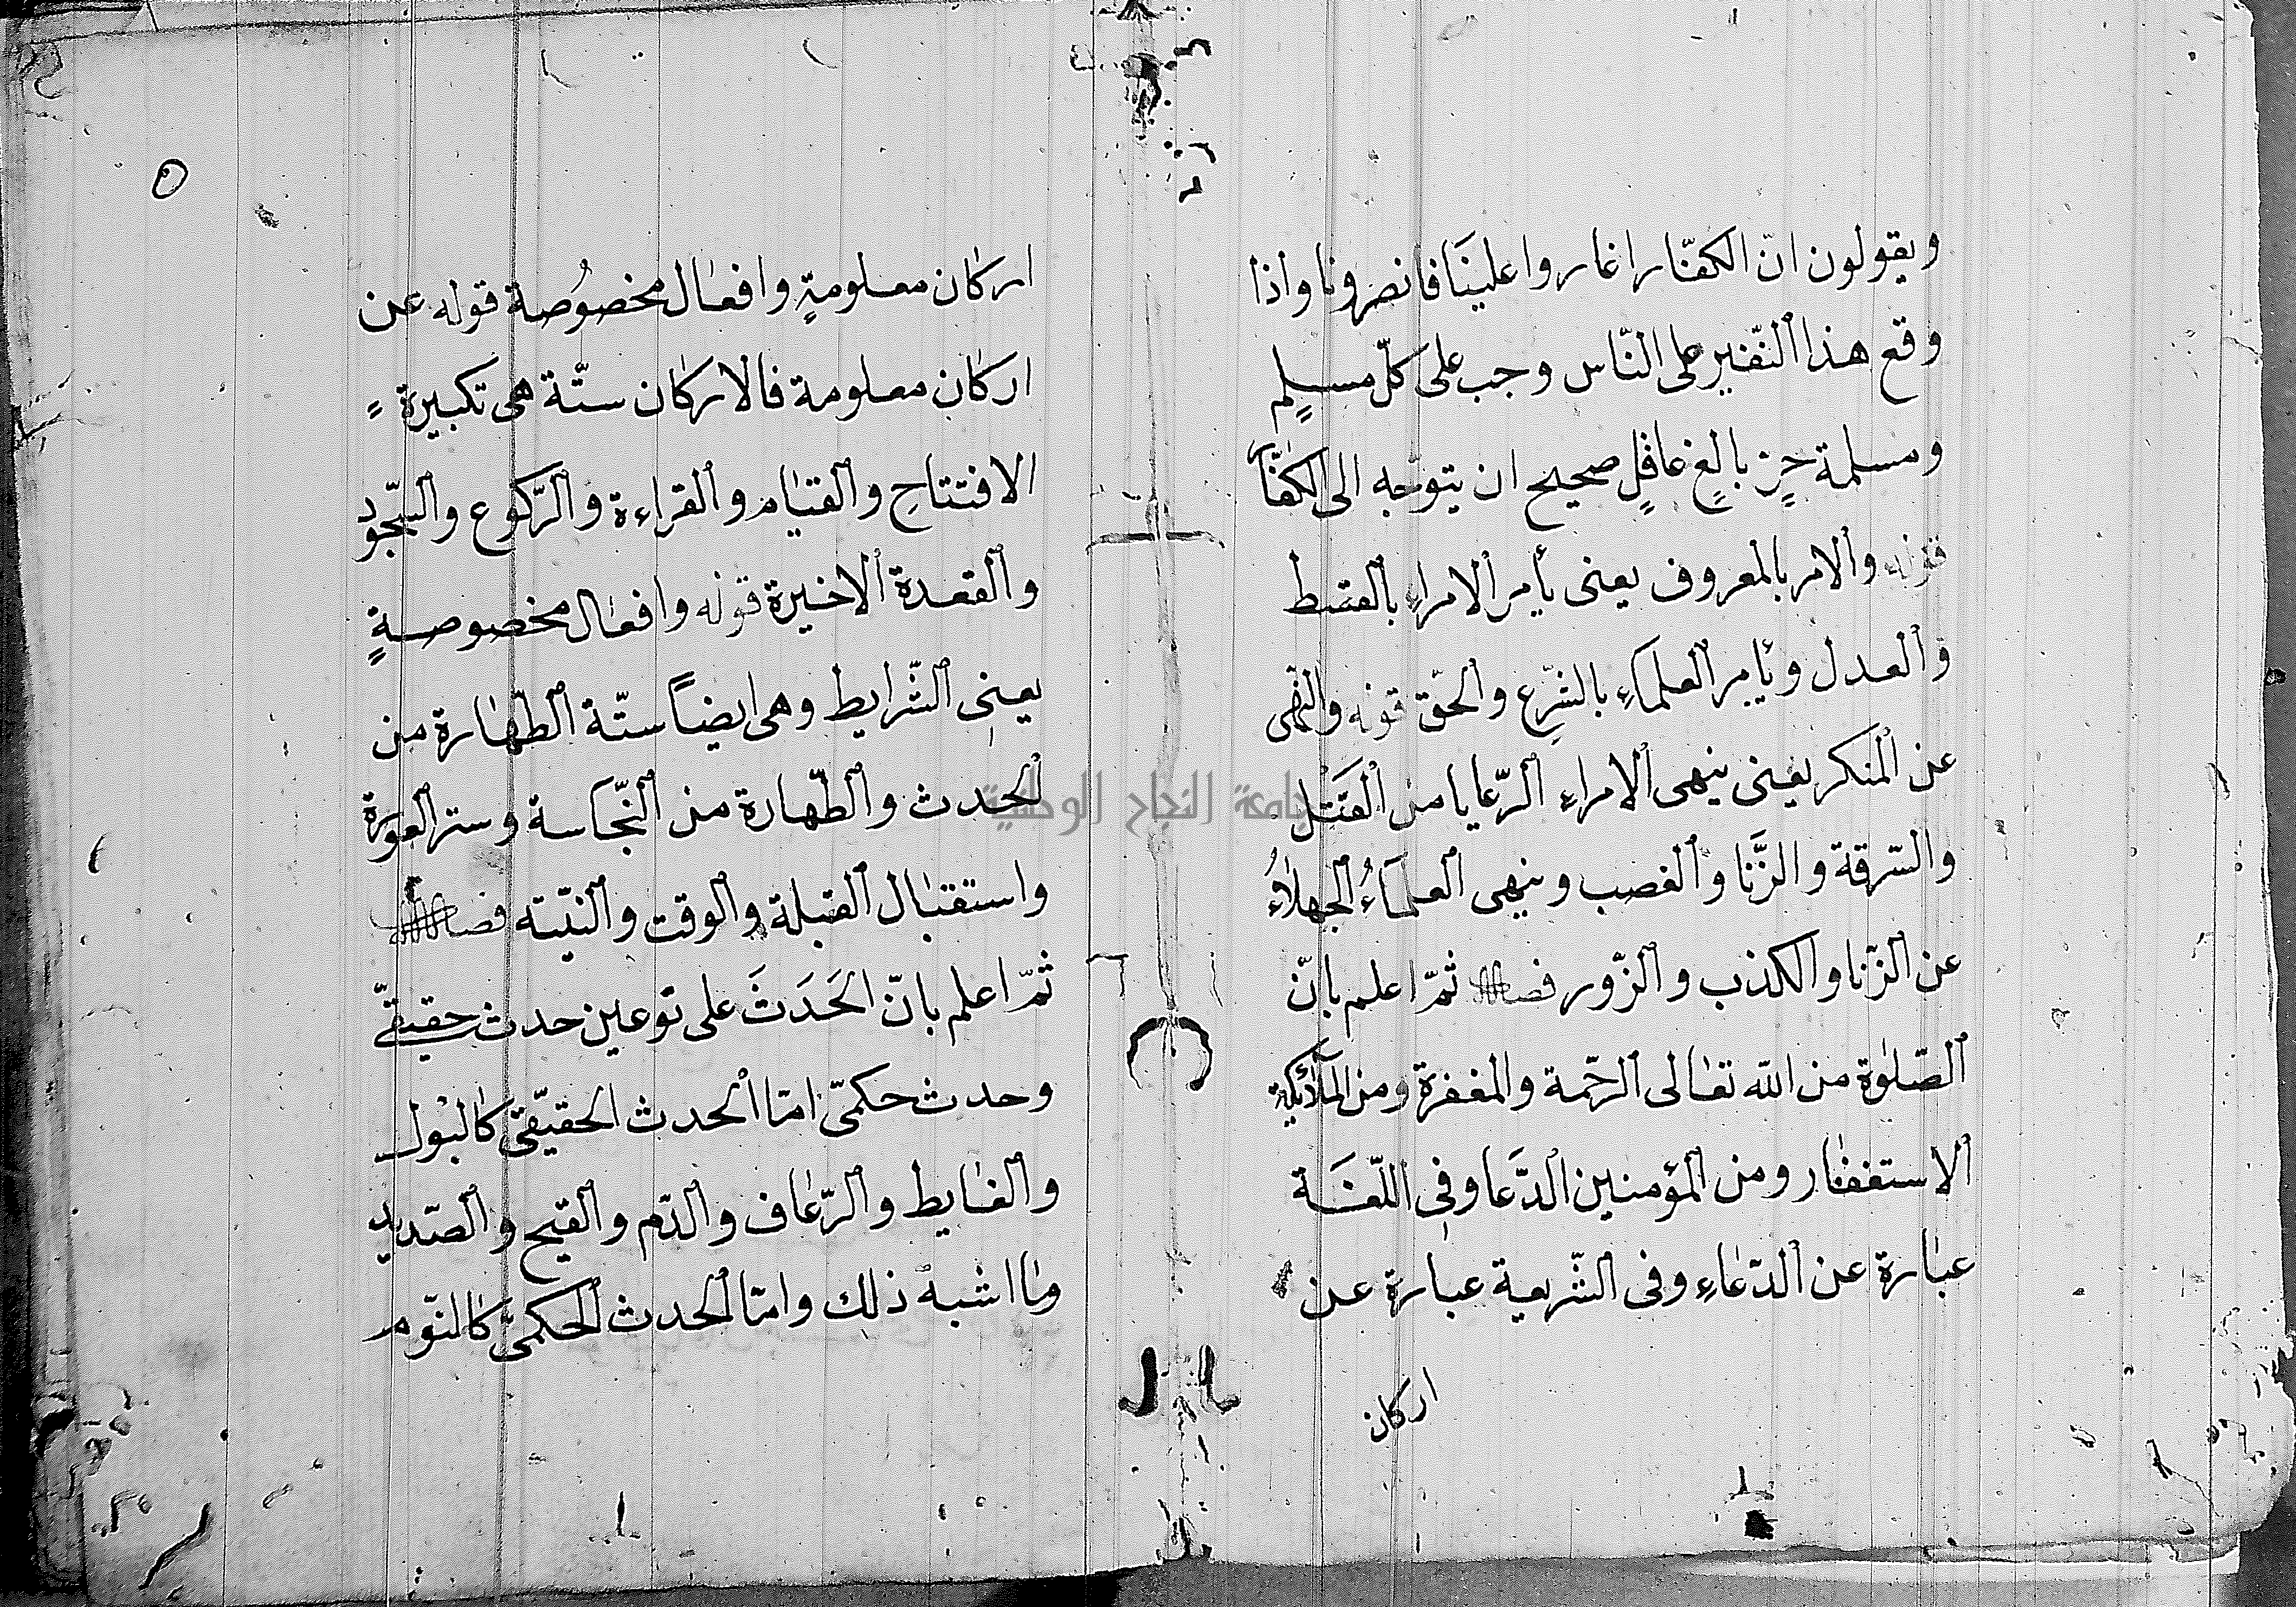 ويقولون انّ الكفّار اغاروا علينَا فانصرونا واذا
وقع هذا النّفير على النّاس وجب على كلّ مسلمٍ
ومسلمة حرٍّ بالغٍ عاقلٍ صحيح ان يتوجّه الى الكفّار
قوله والامر بالمعروف يعنى يأمر الامراء بالقسط
والعدل ويأمر العلماء بالشّرع والحقّ قوله والنّهى
عن المنكر يعنى ينهى الامراء الرّعايا من القَتْل
والسّرقة والزّنَا والغصب وينهى العلمَاءُ الجهلاءُ
عن الزّنا والكذب والزّور فصل ثمّ اعلم بانّ
الصّلوٰة من الله تعالى الرّحمة والمغفرة ومن الملائكة
الاستغفار ومن المؤمنين الدّعا وفى اللّغَة
عبارة عن الدّعاءِ وفى الشّريعة عبارة عن
اركان
٥
اركان معلومةٍ وافعال مخصوُصة قوله عن
اركان معلومة فالاركان ستّة هى تكبيرة
الافتتاح والقيام والقراءة والرّكوع والسّجود
والقعدة الاخيرة قوله وافعال مخصوصةٍ
يعنى الشّرايط وهى ايضاً ستّة الطّهارة من
الحدث والطّهارة من النّجاسة وستر العورة
واستقبال القبلة والوقت والنيّته فصل
ثمّ اعلم بانّ الحَدَثَ على نوعين حدث حقيقىّ
وحدث حكمىّ امّا الحدث الحقيقّى كالبول
والغايط والرّعاف والدّم والقيح والصّديد
وما اشبه ذلك وامّا الحدث الحكمىّ كالنّوم
جامعة النجاح الوطنية